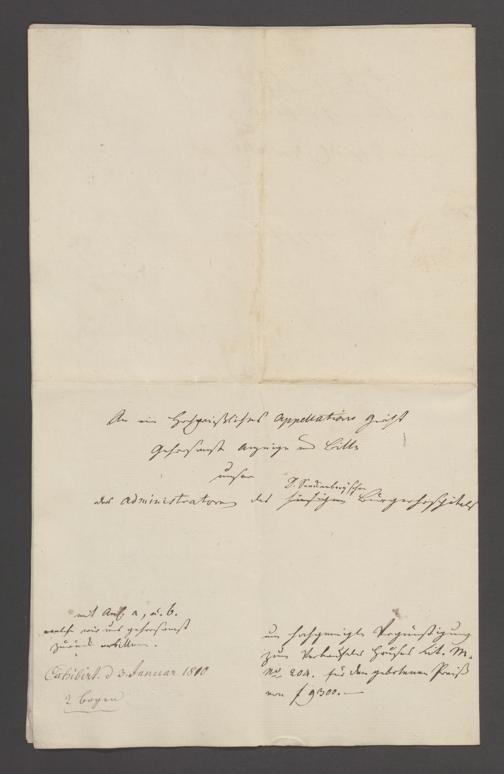 An ein Hochpreißliches Appellations Gericht
Gehorsamste Anzeige und Bitte
unser
D. Senckenbergischen
der Administratoren des hiesigen Bürgerhospitals
mit Anl. a, u. b.
welche wir uns gehorsamst
zurück erbitten.
Exhibirt. d 3. Januar 1810
2 bogen
um hochgeneigte Begünstigung
zum Verkauf des Haußes Lit. M.
No. 204. für den gebotenen Preiß
von f 9300.—